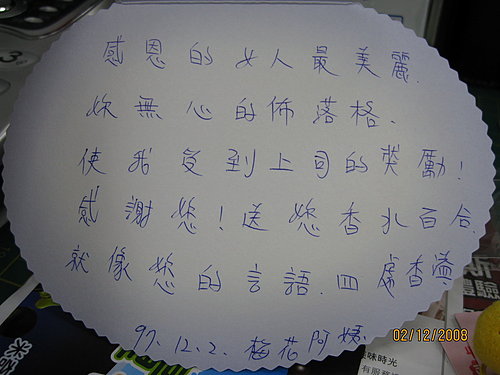 感恩的女人最美麗.
妳無心的佈落格.
使我受到上司的獎勵!
感謝您!送您香水百合.
就像您的言語.四處香溢
97.12.2.梅花阿姨.
02/12/2008
味時光
有服務